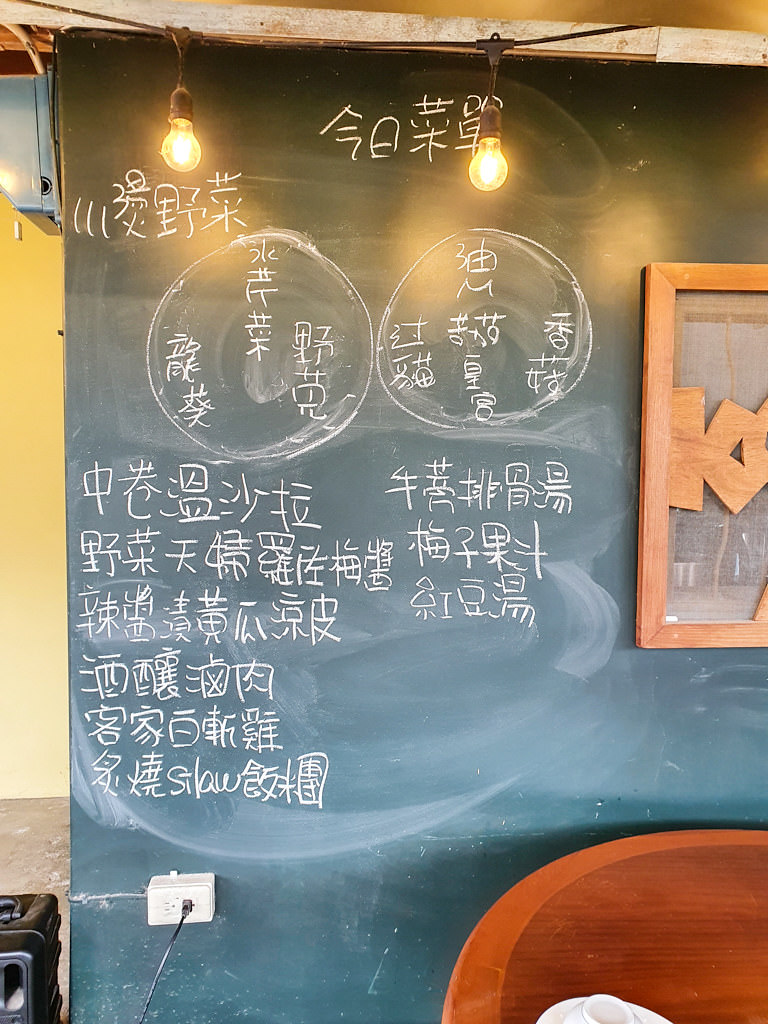 今日菜單
川燙野菜
水芹菜
龍葵
野莧
过貓
皇宮
香菇
中卷溫沙拉
野菜天婦羅佐梅醬
辣醬漬黃瓜涼皮
酒釀滷肉
客家白斬雞
炙燒silaw飯糰
牛蒡排骨湯
梅子果汁
紅豆湯